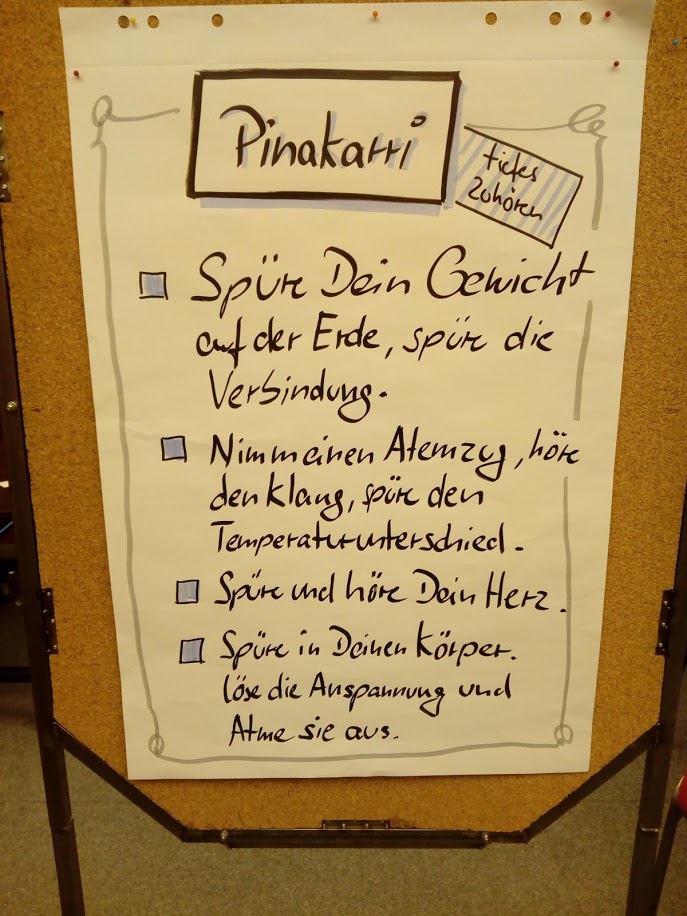 Pinakarri
tiefes
Zuhören
Spüre Dein Gewicht
auf der Erde, spüre die
Verbindung.
Nimm einen Atemzug, höre
den Klang, spüre den
Temperaturunterschied.
Spüre und höre Dein Herz.
Spüre in Deinen Körper.
löse die Anspannung und
Atme sie aus.